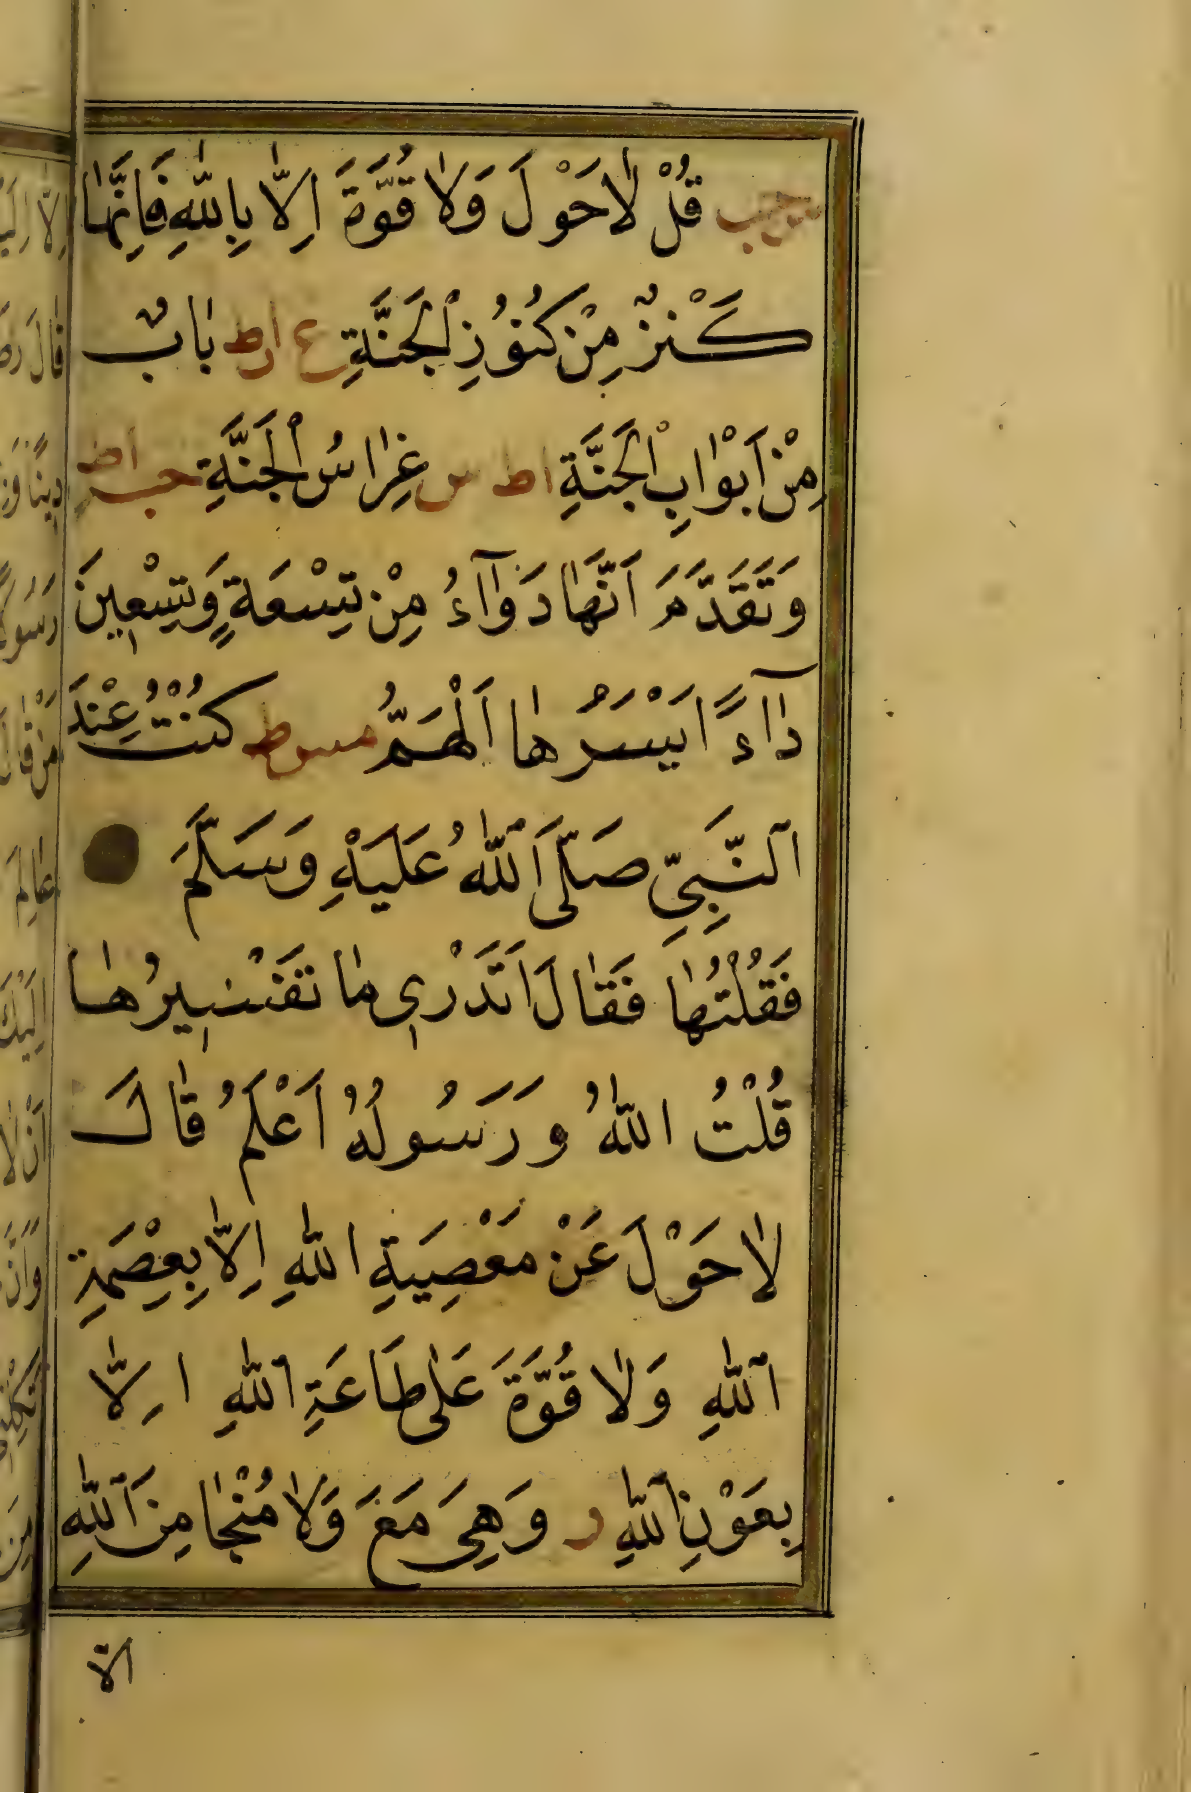 قُلْ لَا حَوْلَ وَلَا قُوَّةَ اِلَّا بِاللّٰهِ فَاِنَّهَا
كَنْزٌ مِنْ كُنُوزِ الْجَنَّةِ ع ا ر ط بَابٌ
مِنْ اَبْوَابِ الْجَنَّةِ ا ط س غِرَاسُ الْجَنَّةِ حب ا ط
وَتَقَدَّمَ اَنَّهَا دَوَآءُ مِنْ تِسْعَةٍ وَتِسْعِينَ
دَآءً اَيْسَرُهَا اَلْهَمُّ مس ط كُنْتُ عِنْدَ
اَلنَّبِيِّ صَلَّى اَللّٰهُ عَلَيْهِ وَسَلَّمَ
فَقُلْتُهَا فَقَالَ اَتَدْرِي مَا تَفْسِيرُهَا
قُلْتُ اللّٰهُ وَرَسُولُهُ اَعْلَمُ قَالَ
لَا حَوْلَ عَنْ مَعْصِيَةِ اللّٰهِ اِلَّا بِعِصْمَةِ
اَللّٰهِ وَلَا قُوَّةَ عَلٰى طَاعَةِ اللّٰهِ اِلَّا
بِعَوْنِ اللّٰهِ ر وَهِيَ مَعَ وَلَا مَنْجَا مِنَ اَللّٰهِ
الا